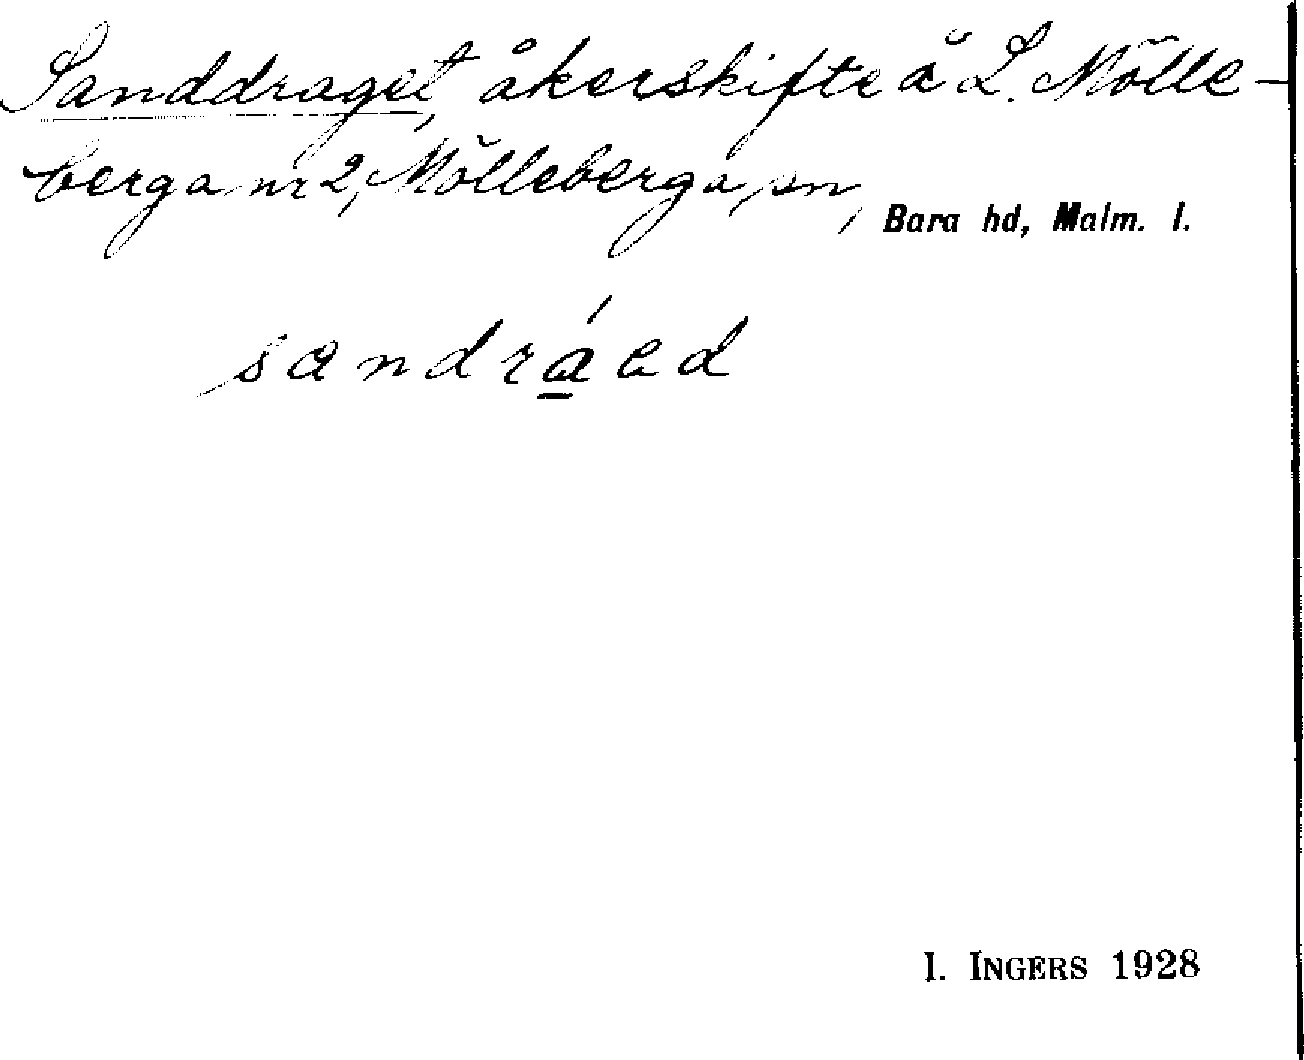 Sanddraget, åkerskifte å L. Mölle-
berga nr 2, Mölleberga sn, Bara hd, Malm. l.
sandráed
I. INGERS 1928